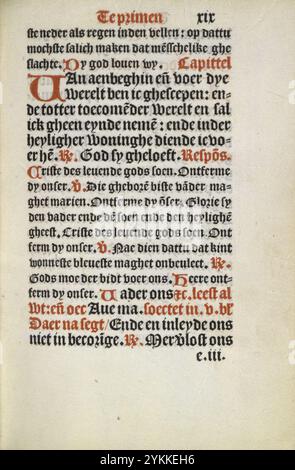 Te primen xix
ste neder als regen inden vellen: op dattu
mochste salich maken dat mēsschelike ghe
slachte. Dy god louen wy. Capittel
UAn aenbeghin eñ voer dye
werelt ben ic ghescepen: en-
de totter toecomēder werelt en sal
ick gheen eynde nemē: ende inder
heyligher woninghe diende ic vo-
er hē. R̃. God sy gheloeft. Respōs.
Criste des leuende gods soen. Ontferme
dy onser. V̄. Die gheborē biste vāder ma-
ghet marien. Ontferme dy ōser. Glorie sy
den vader ende dē soen ende den heylighē
gheest. Criste des leuende gods soen. Ont
ferm dy onser. V̄. Nae dien dattu dat kint
wonneste bleueste maghet onbeulect. R̃.
Gods moeder bidt voer ons. Heere ont-
ferm dy onser. Uader ons ⁊c. leest al
Wt: eñ oec Aue ma. soectet in. v. bł
Daer na segt/ Ende en inleyde ons
niet in becorīge. R̃. Mer vlost ons
e.iii.
alamy
Image ID: 2YKKEH6
www.alamy.com